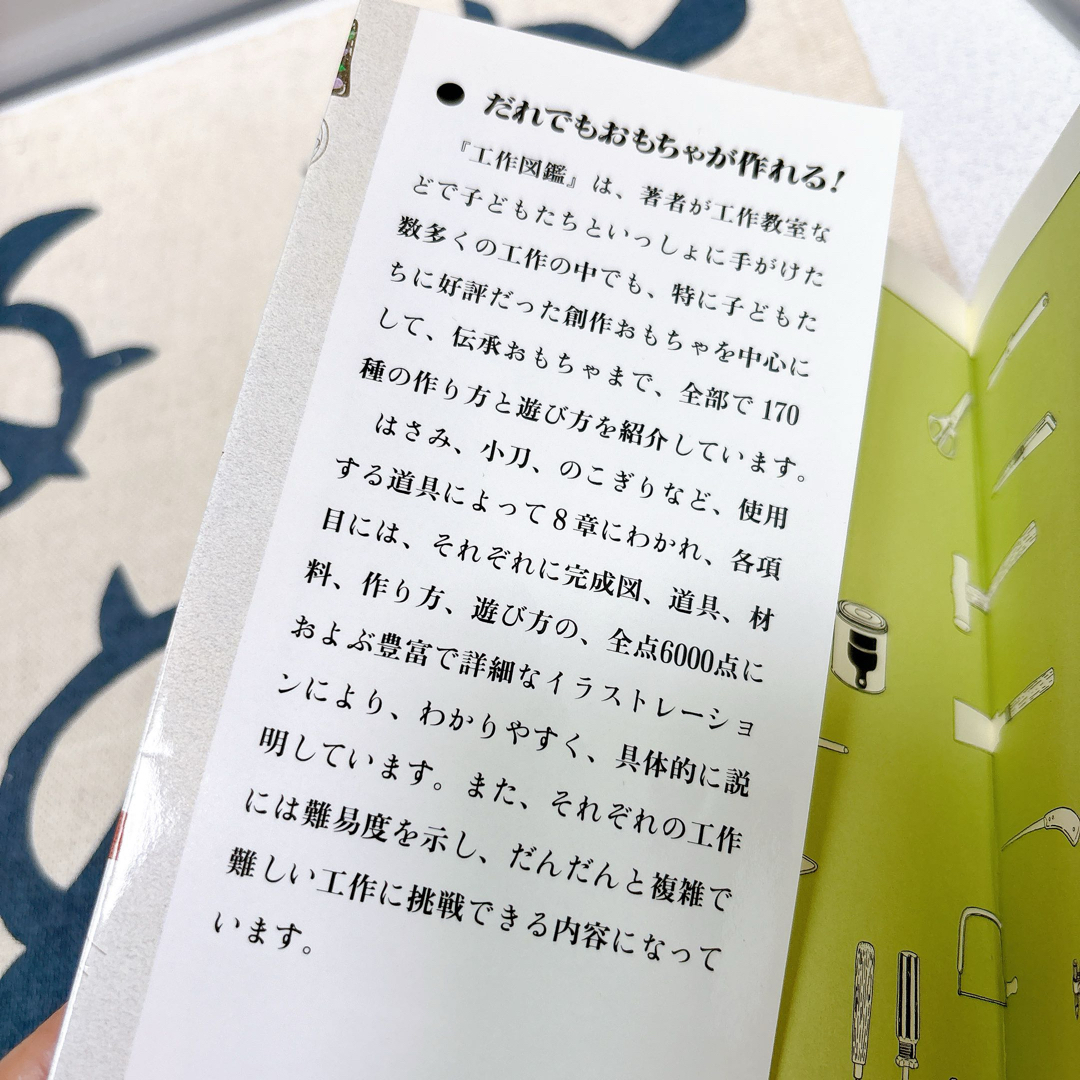 ● だれでもおもちゃが作れる!
『工作図鑑』は、著者が工作教室な
どで子どもたちといっしょに手がけた
数多くの工作の中でも、特に子どもた
ちに好評だった創作おもちゃを中心に
して、伝承おもちゃまで、全部で170
種の作り方と遊び方を紹介しています。
はさみ、小刀、のこぎりなど、使用
する道具によって8章にわかれ、各項
目には、それぞれに完成図、道具、材
料、作り方、遊び方の、全点6000点に
およぶ豊富で詳細なイラストレーショ
ンにより、わかりやすく、具体的に説
明しています。また、それぞれの工作
には難易度を示し、だんだんと複雑で
難しい工作に挑戦できる内容になって
います。